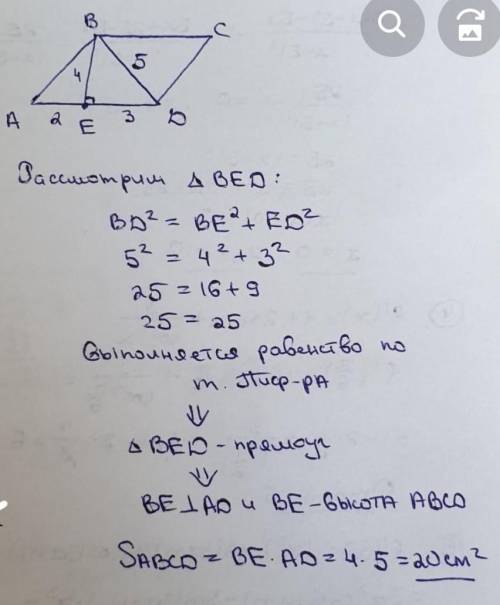 B
C
4
5
A
2
E
3
D
Рассмотрим △ BED :
BD² = BE² + ED²
5² = 4² + 3²
25 = 16 + 9
25 = 25
Выполняется равенство по
т. Пиф-ра
⇓
△ BED - прямоуг
⇓
BE⊥AD и BE - высота ABCD
SABCD = BE · AD = 4 · 5 = 20 см²